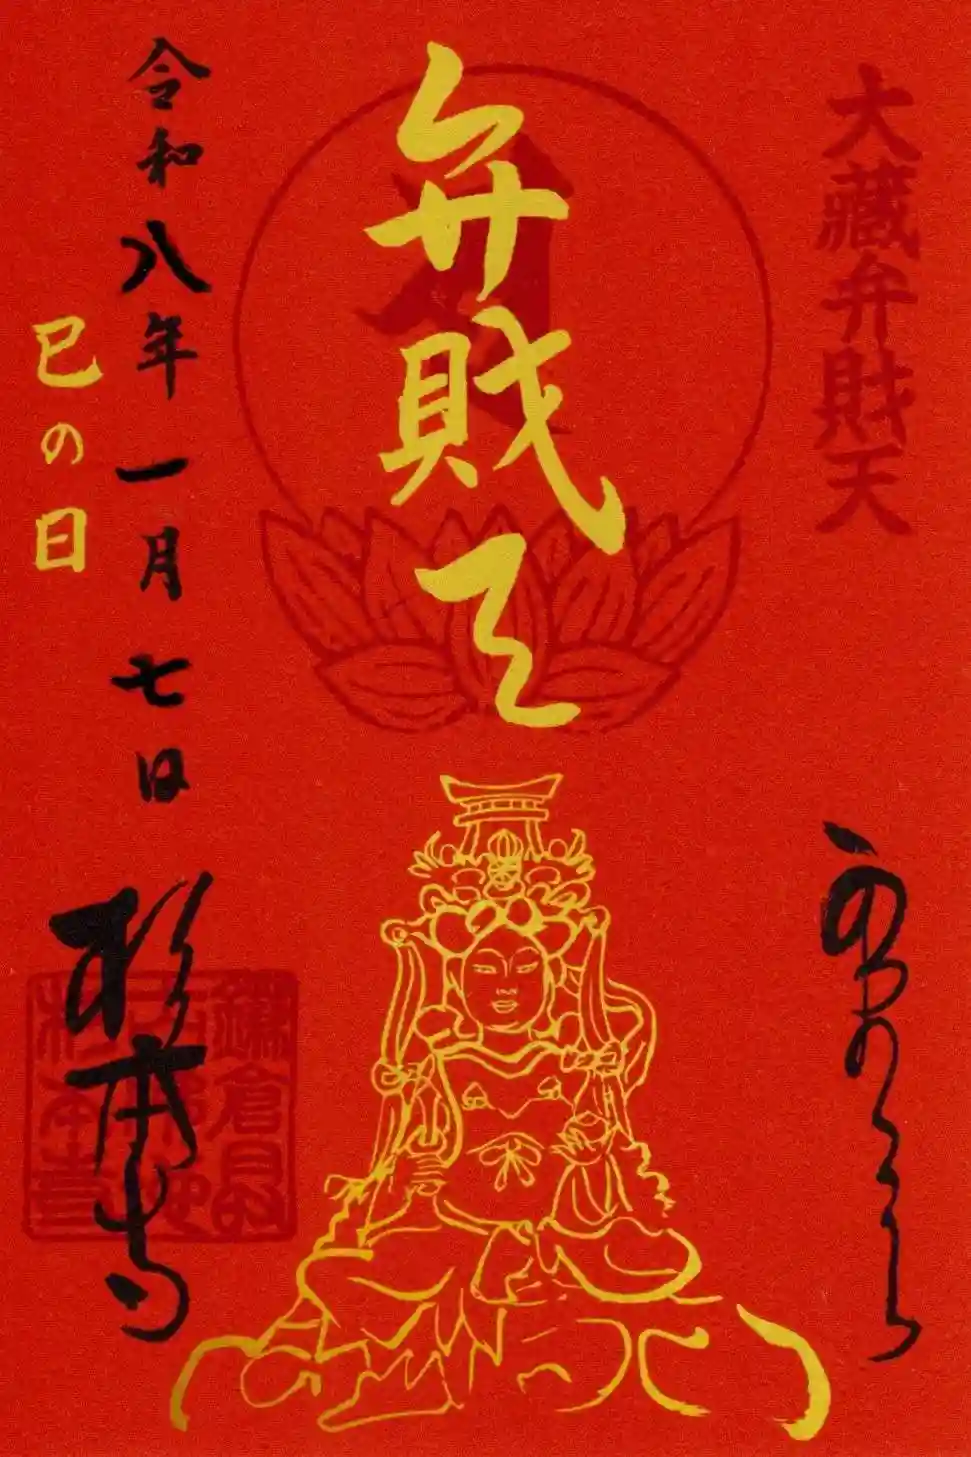 大藏弁財天
弁財天
令和八年一月七日
杉本寺
巳の日